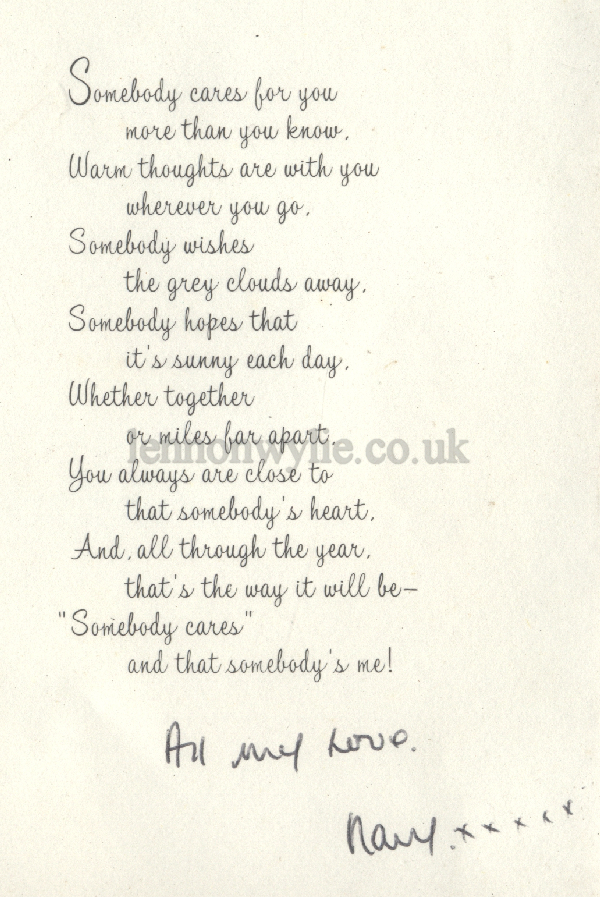 Somebody cares for you
more than you know,
Warm thoughts are with you
wherever you go,
Somebody wishes
the grey clouds away,
Somebody hopes that
it's sunny each day,
Whether together
or miles far apart,
lennonwylie.co.uk
You always are close to
that somebody's heart,
And, all through the year,
that's the way it will be—
"Somebody cares"
and that somebody's me!
All my Love.
xxxxx